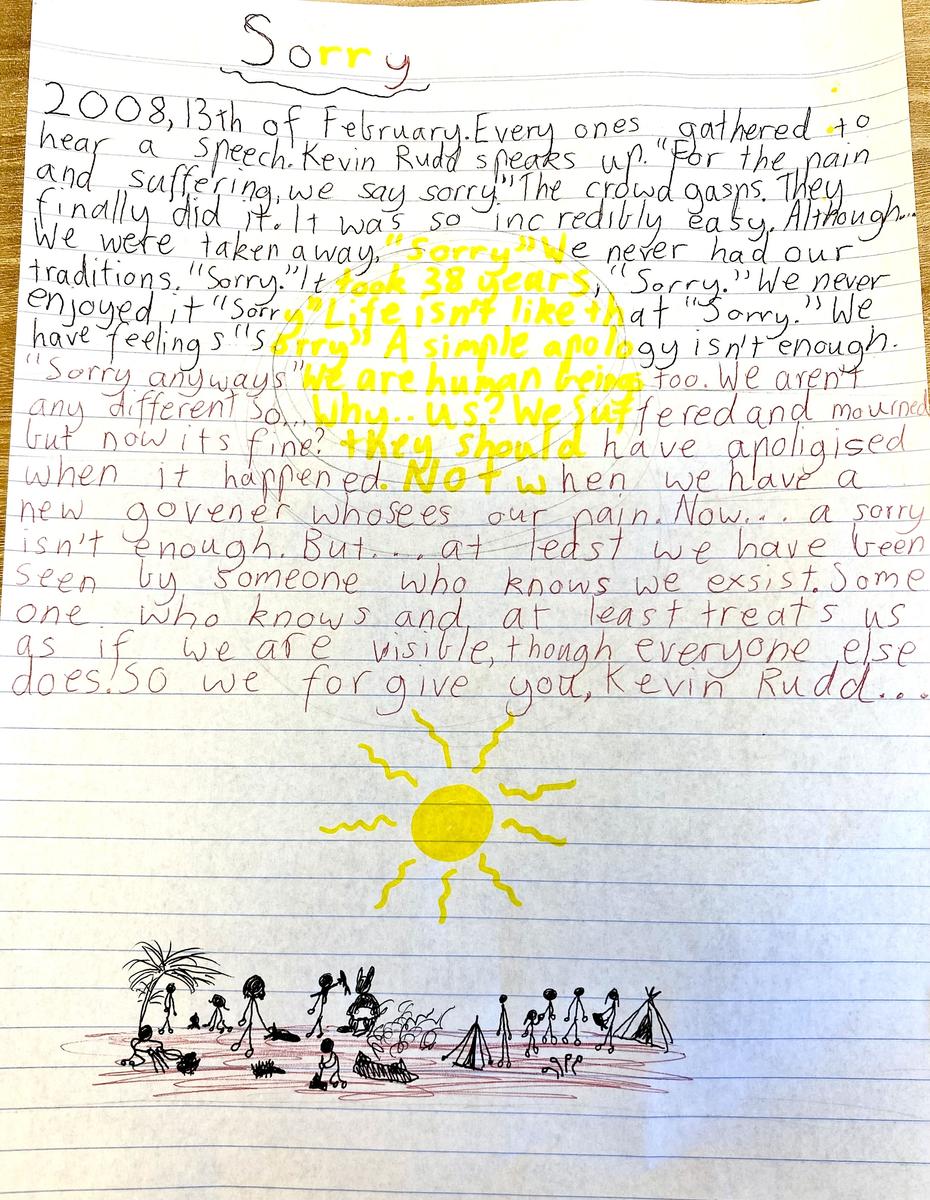 Sorry
2008, 13th of February. Every ones gathered to
hear a speech. Kevin Rudd speaks up. "For the pain
and suffering, we say sorry" The crowd gasps. They
finally did it. It was so incredibly easy. Although...
We were taken away, "Sorry" We never had our
traditions. "Sorry." It took 38 years, "Sorry." We never
enjoyed it "Sorry" Life isn't like that "Sorry." We
have feelings "Sorry" A simple apology isn't enough.
"Sorry anyways" We are human beings too. We aren't
any different so... Why.. us? We suffered and mourned
but now its fine? they should have apoligised
when it happened. Not when we have a
new govener whosees our pain. Now... a sorry
isn't enough. But.... at least we have been
seen by someone who knows we exsist. Some
one who knows and at least treats us
as if we are visible, though everyone else
does. So we forgive you, Kevin Rudd...